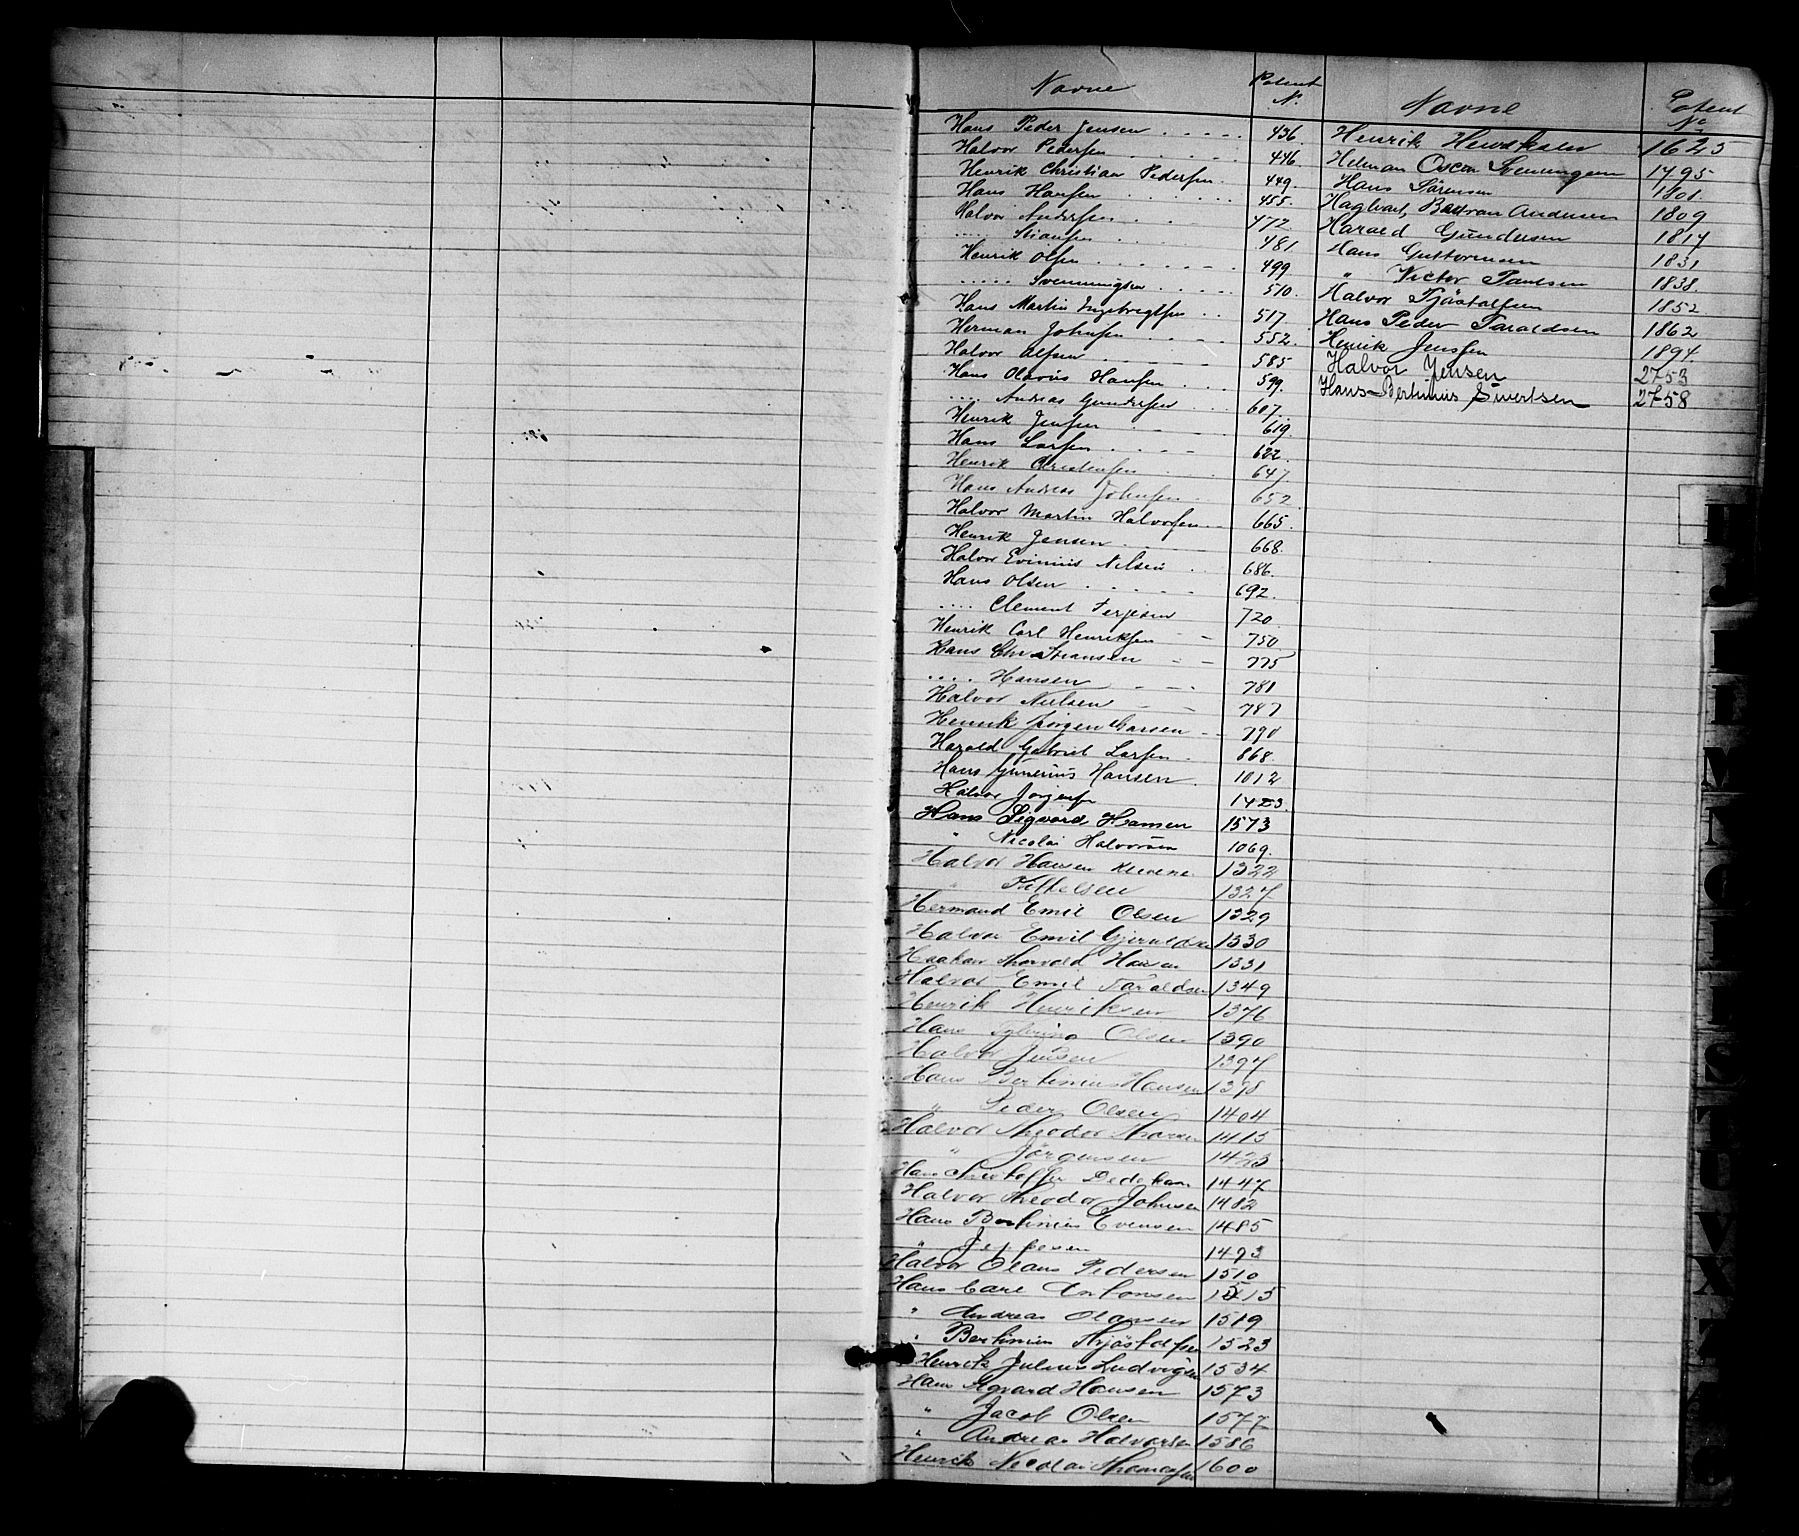 Navne Patent N.
Hans Peder Jensen 436.
Halvor Pedersen 446.
Henrik Christian Pedersen 449.
Hans Hansen 455.
Halvor Andersen 472
..... Stiansen 481
Henrik Olsen 499
..... Svenningsen 510.
Hans Martin Engebregtsen 517
Herman Johnsen 552.
Halvor Olsen 585
Hans Olavus Hansen 599.
.... Andreas Gundersen 607.
Henrik Jensen 619.
Hans Larsen 622.
Henrik Christensen 647
Hans Andreas Johnsen 652
Halvor Martin Halvorsen 665.
Henrik Jensen 668.
Halvor Evinius Nilsen 686.
Hans Olsen 692.
.... Clement Terjesen 720.
Henrik Carl Henriksen 750
Hans Chr Stiansen 775
.... Hansen 781
Halvor Nielsen 787
Henrik Jørgen Larsen 790
Harald Gabriel Larsen 868.
Hans Gunerius Hansen 1012
Halvor Jørgensen 1423.
Hans Sigvard Hansen 1573
" Nicolai Halvorsen 1069.
Halvor Hansen 1322
" Kittelsen 1327
Hermand Emil Olsen 1329
Halvor Emil Gjeruldsen 1330
Haakon Thorvald Hansen 1331
Halvor Emil Taraldsen 1349
Henrik Henriksen 1376
Hans Olsen 1390
Halvor Jensen 1397
Hans Bertinius Hansen 1398
" Peder Olsen 1404
Halvor Theodor 1415
" Jörgensen 1423
Hans Christoffer Dedekam 1447
Halvor Theodor Johnsen 1482
Hans Bertinius Evensen 1485
" Jeppesen 1493
Halvor Olaus Pedersen 1510
Hans Carl Antonsen 1515
" Andreas Olausen 1519
" Bertinius Thjöstolfsen 1523
Henrik Julius Ludvigsen 1534
Hans Sigvard Hansen 1573
" Jacob Olsen 1577
" Andreas Halvorsen 1586
Henrik Nicolai Thomassen 1600
Navne Patent No
Henrik Henriksen 1625
Helman Oscar Svenningsen 1795
Hans Sörensen 1801.
Hagbart Andersen 1809
Harald Gundersen 1817
Hans Guttormsen 1831
" Victor Paulsen 1838.
Halvor Tjöstolfsen 1852
Hans Peder Taraldsen 1862
Henrik Jenssen 1894.
Halvor Jensen 2753
Hans Bertinius Sivertsen 2758